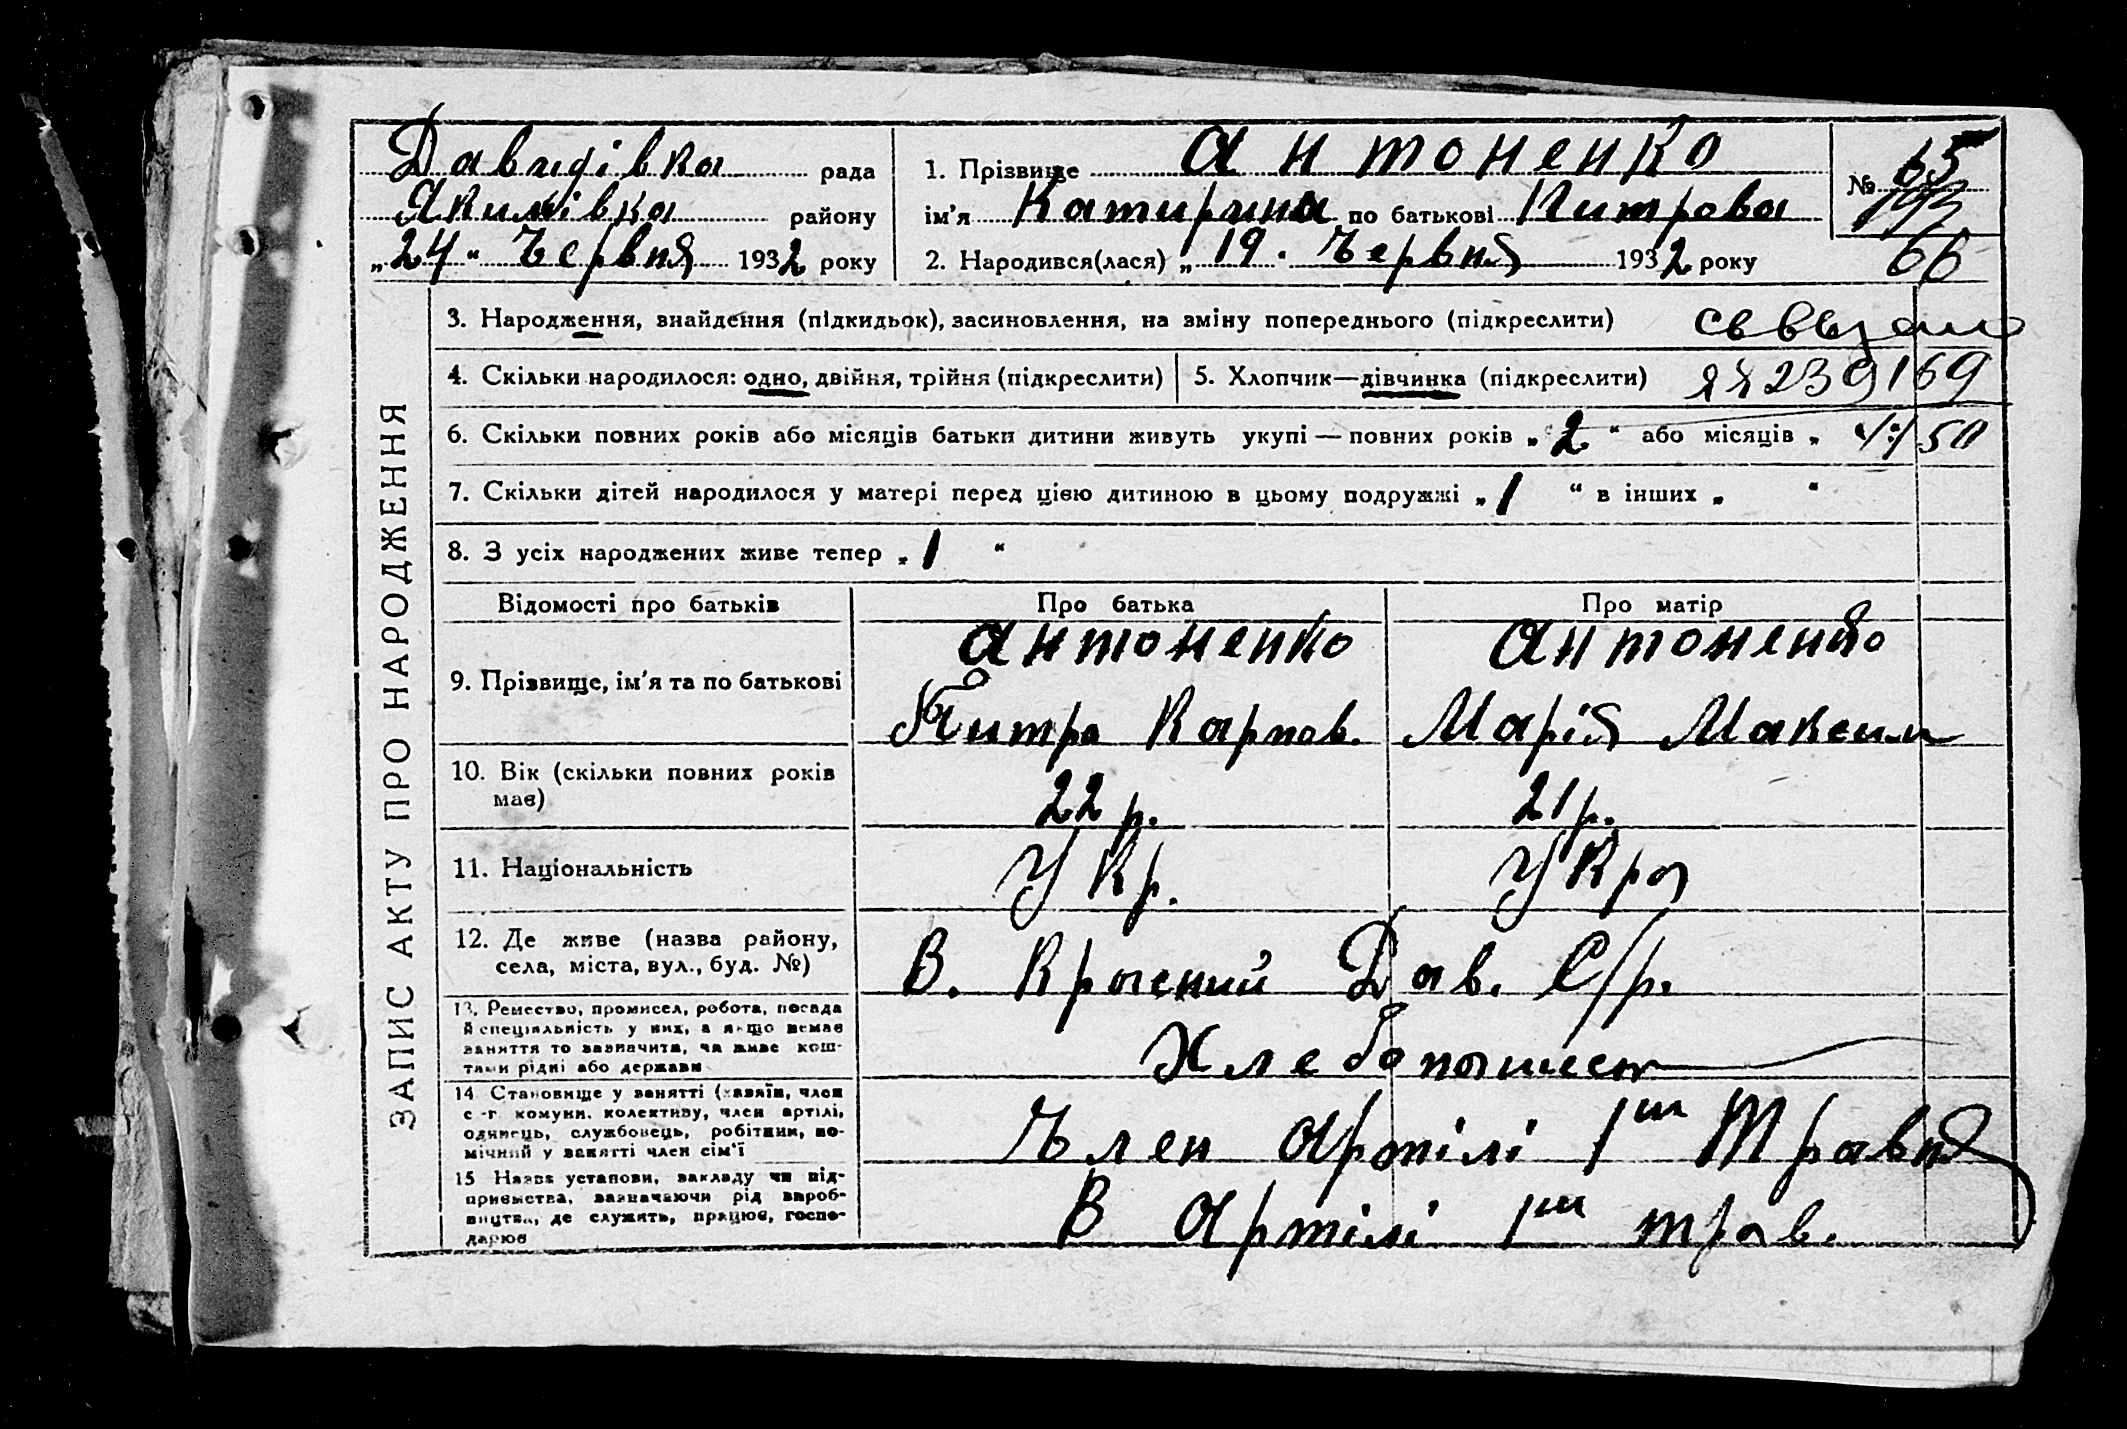 Давидівка рада
Якимівка району
„24“ Червня 1932 року
1. Прізвище Антоненко
ім'я Катирина по батькові Питрова
2. Народився(лася) „19. Червня 1932 року
№ 65
66
ЗАПИС АКТУ ПРО НАРОДЖЕННЯ
3. Народження, знайдення (підкидьок), засиновлення, на зміну попереднього (підкреслити)
св выдано
4. Скільки народилося: одно, двійня, трійня (підкреслити)
5. Хлопчик—дівчинка (підкреслити)
239169
6. Скільки повних років або місяців батьки дитини живуть укупі — повних років „2“ або місяців „
50
7. Скільки дітей народилося у матері перед цією дитиною в цьому подружжі „1“ в інших „ “
8. З усіх народжених живе тепер „1“
Відомості про батьків
Про батька
Про матір
9. Прізвище, ім'я та по батькові
Антоненко
Питро Карпов.
Антоненко
Марія Максим
10. Вік (скільки повних років
має)
22 р.
21 р.
11. Національність
Укр.
Укра
12. Де живе (назва району,
села, міста, вул., буд. №)
В. Красний Дав. С/р.
13. Ремество, промисел, робота, посада
й спеціяльність у них, а якщо немає
заняття то зазначити, чи живе кош-
тами рідні або держави
Хлебопашест
14 Становище у занятті (хазяїн, член
с.-г. комуни, колективу, член артілі,
одинець, службовець, робітник, по-
мічний у занятті член сім'ї
Член Артілі 1ш Травня
15 Назва установи, закладу чи під-
приємства, зазначаючи рід вироб-
ництва, де служить, працює, госпо-
дарює
В Артілі 1ш трав.